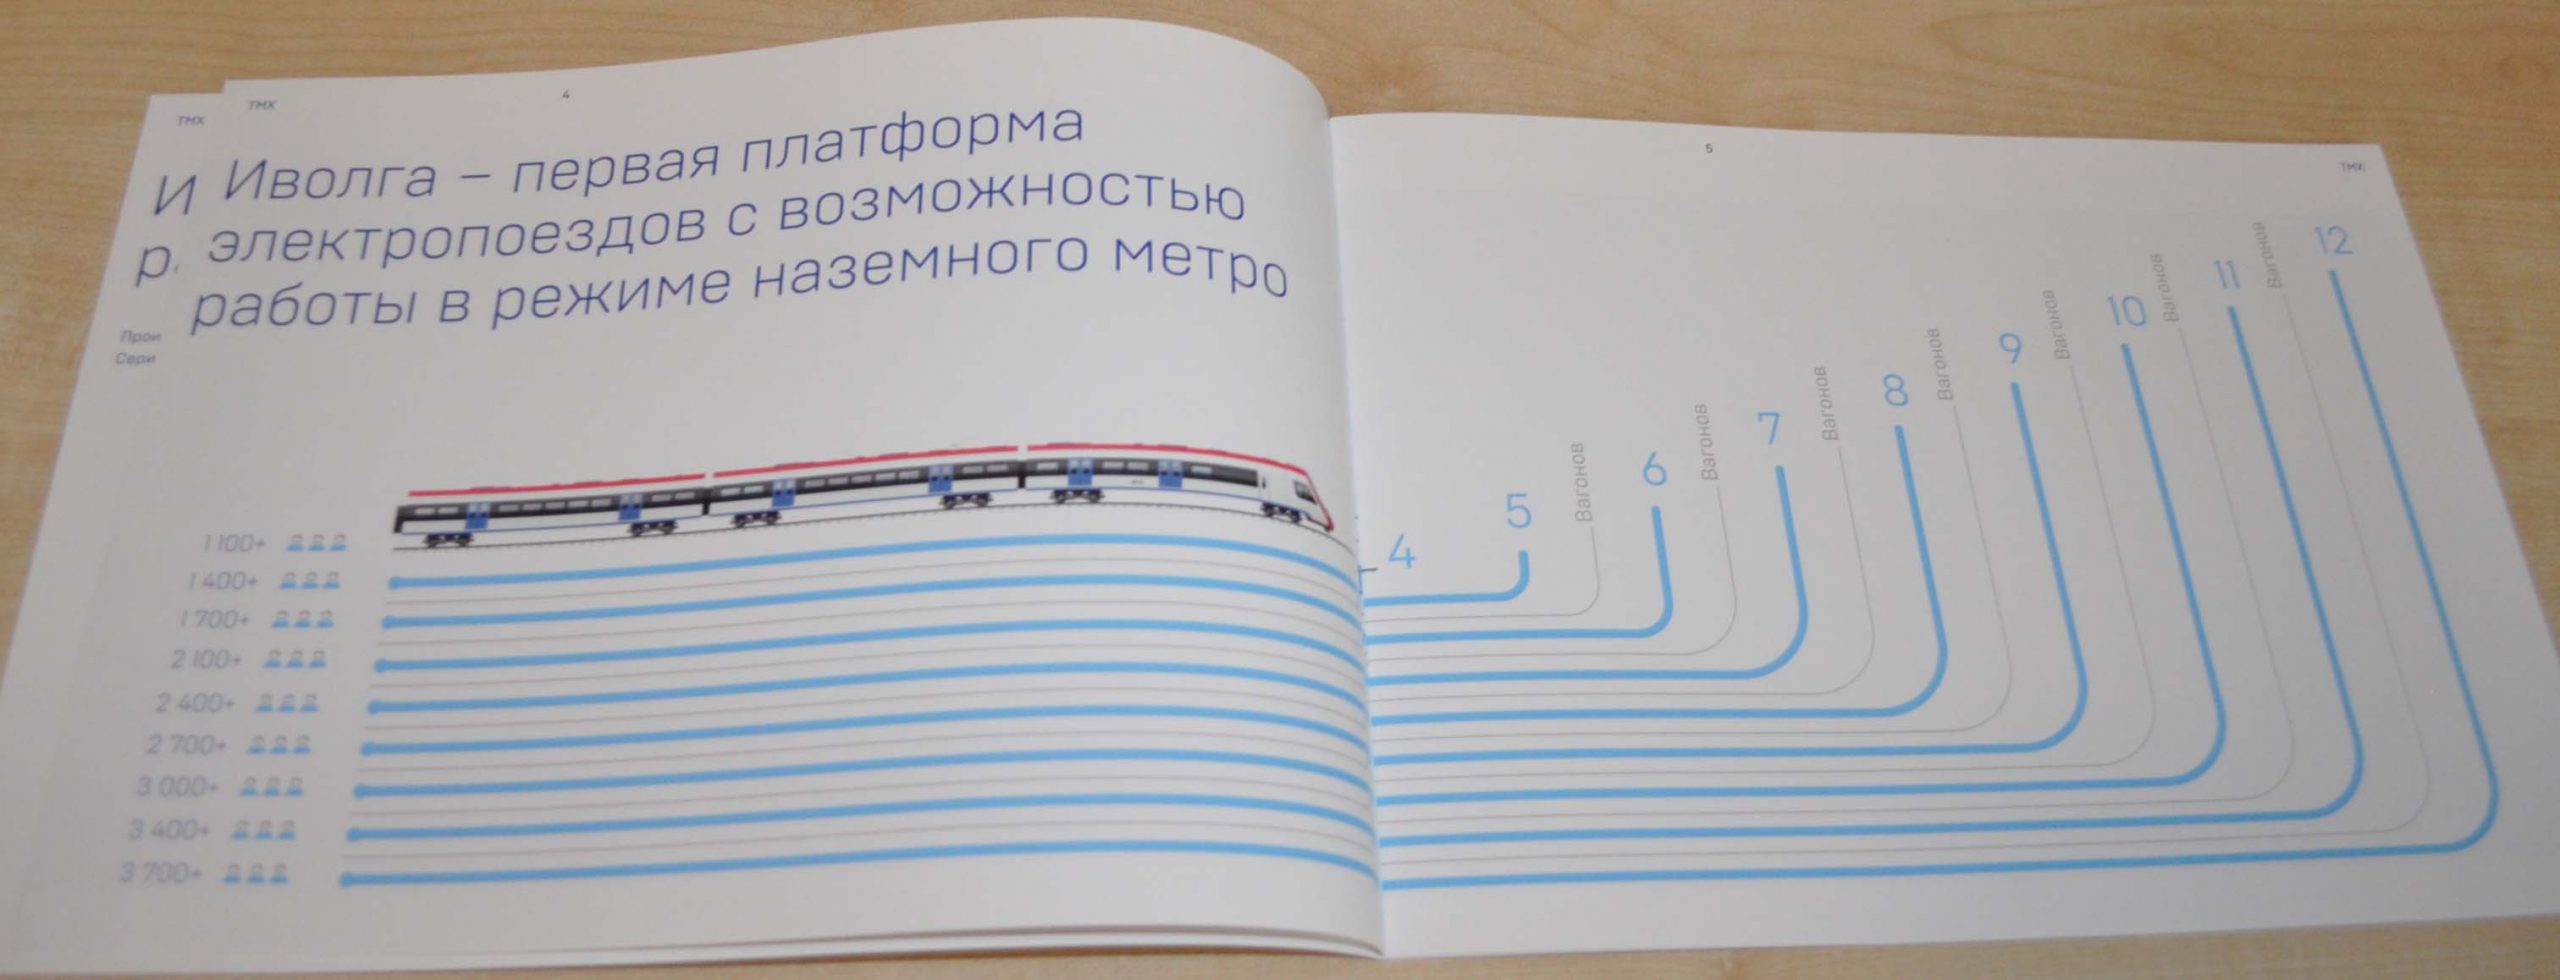 ТМХ
ТМХ
4
И
р
Прои
Сери
Иволга – первая платформа
электропоездов с возможностью
работы в режиме наземного метро
1 100+
1 400+
1 700+
2 100+
2 400+
2 700+
3 000+
3 400+
3 700+
5
ТМХ
4
5
Вагонов
6
Вагонов
7
Вагонов
8
Вагонов
9
Вагонов
10
Вагонов
11
Вагонов
12